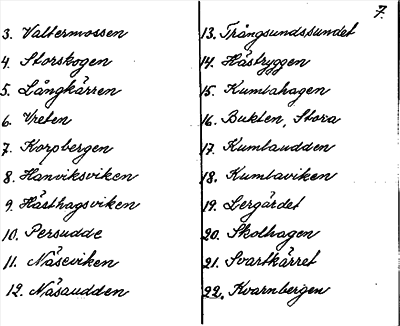 7.
3. Valtermossen
4. Storskogen
5. Långkärren
6. Vreten
7. Korpbergen
8. Hanviksviken
9. Hästhagsviken
10. Persudde
11. Näseviken
12. Näsudden
13. Trångsundssundet
14. Häströggen
15. Kumlahagen
16. Bukten, Stora
17. Kumlaudden
18. Kumlaviken
19. Lergärdet
20. Skolhagen
21. Svartkärret
22. Kvarnbergen